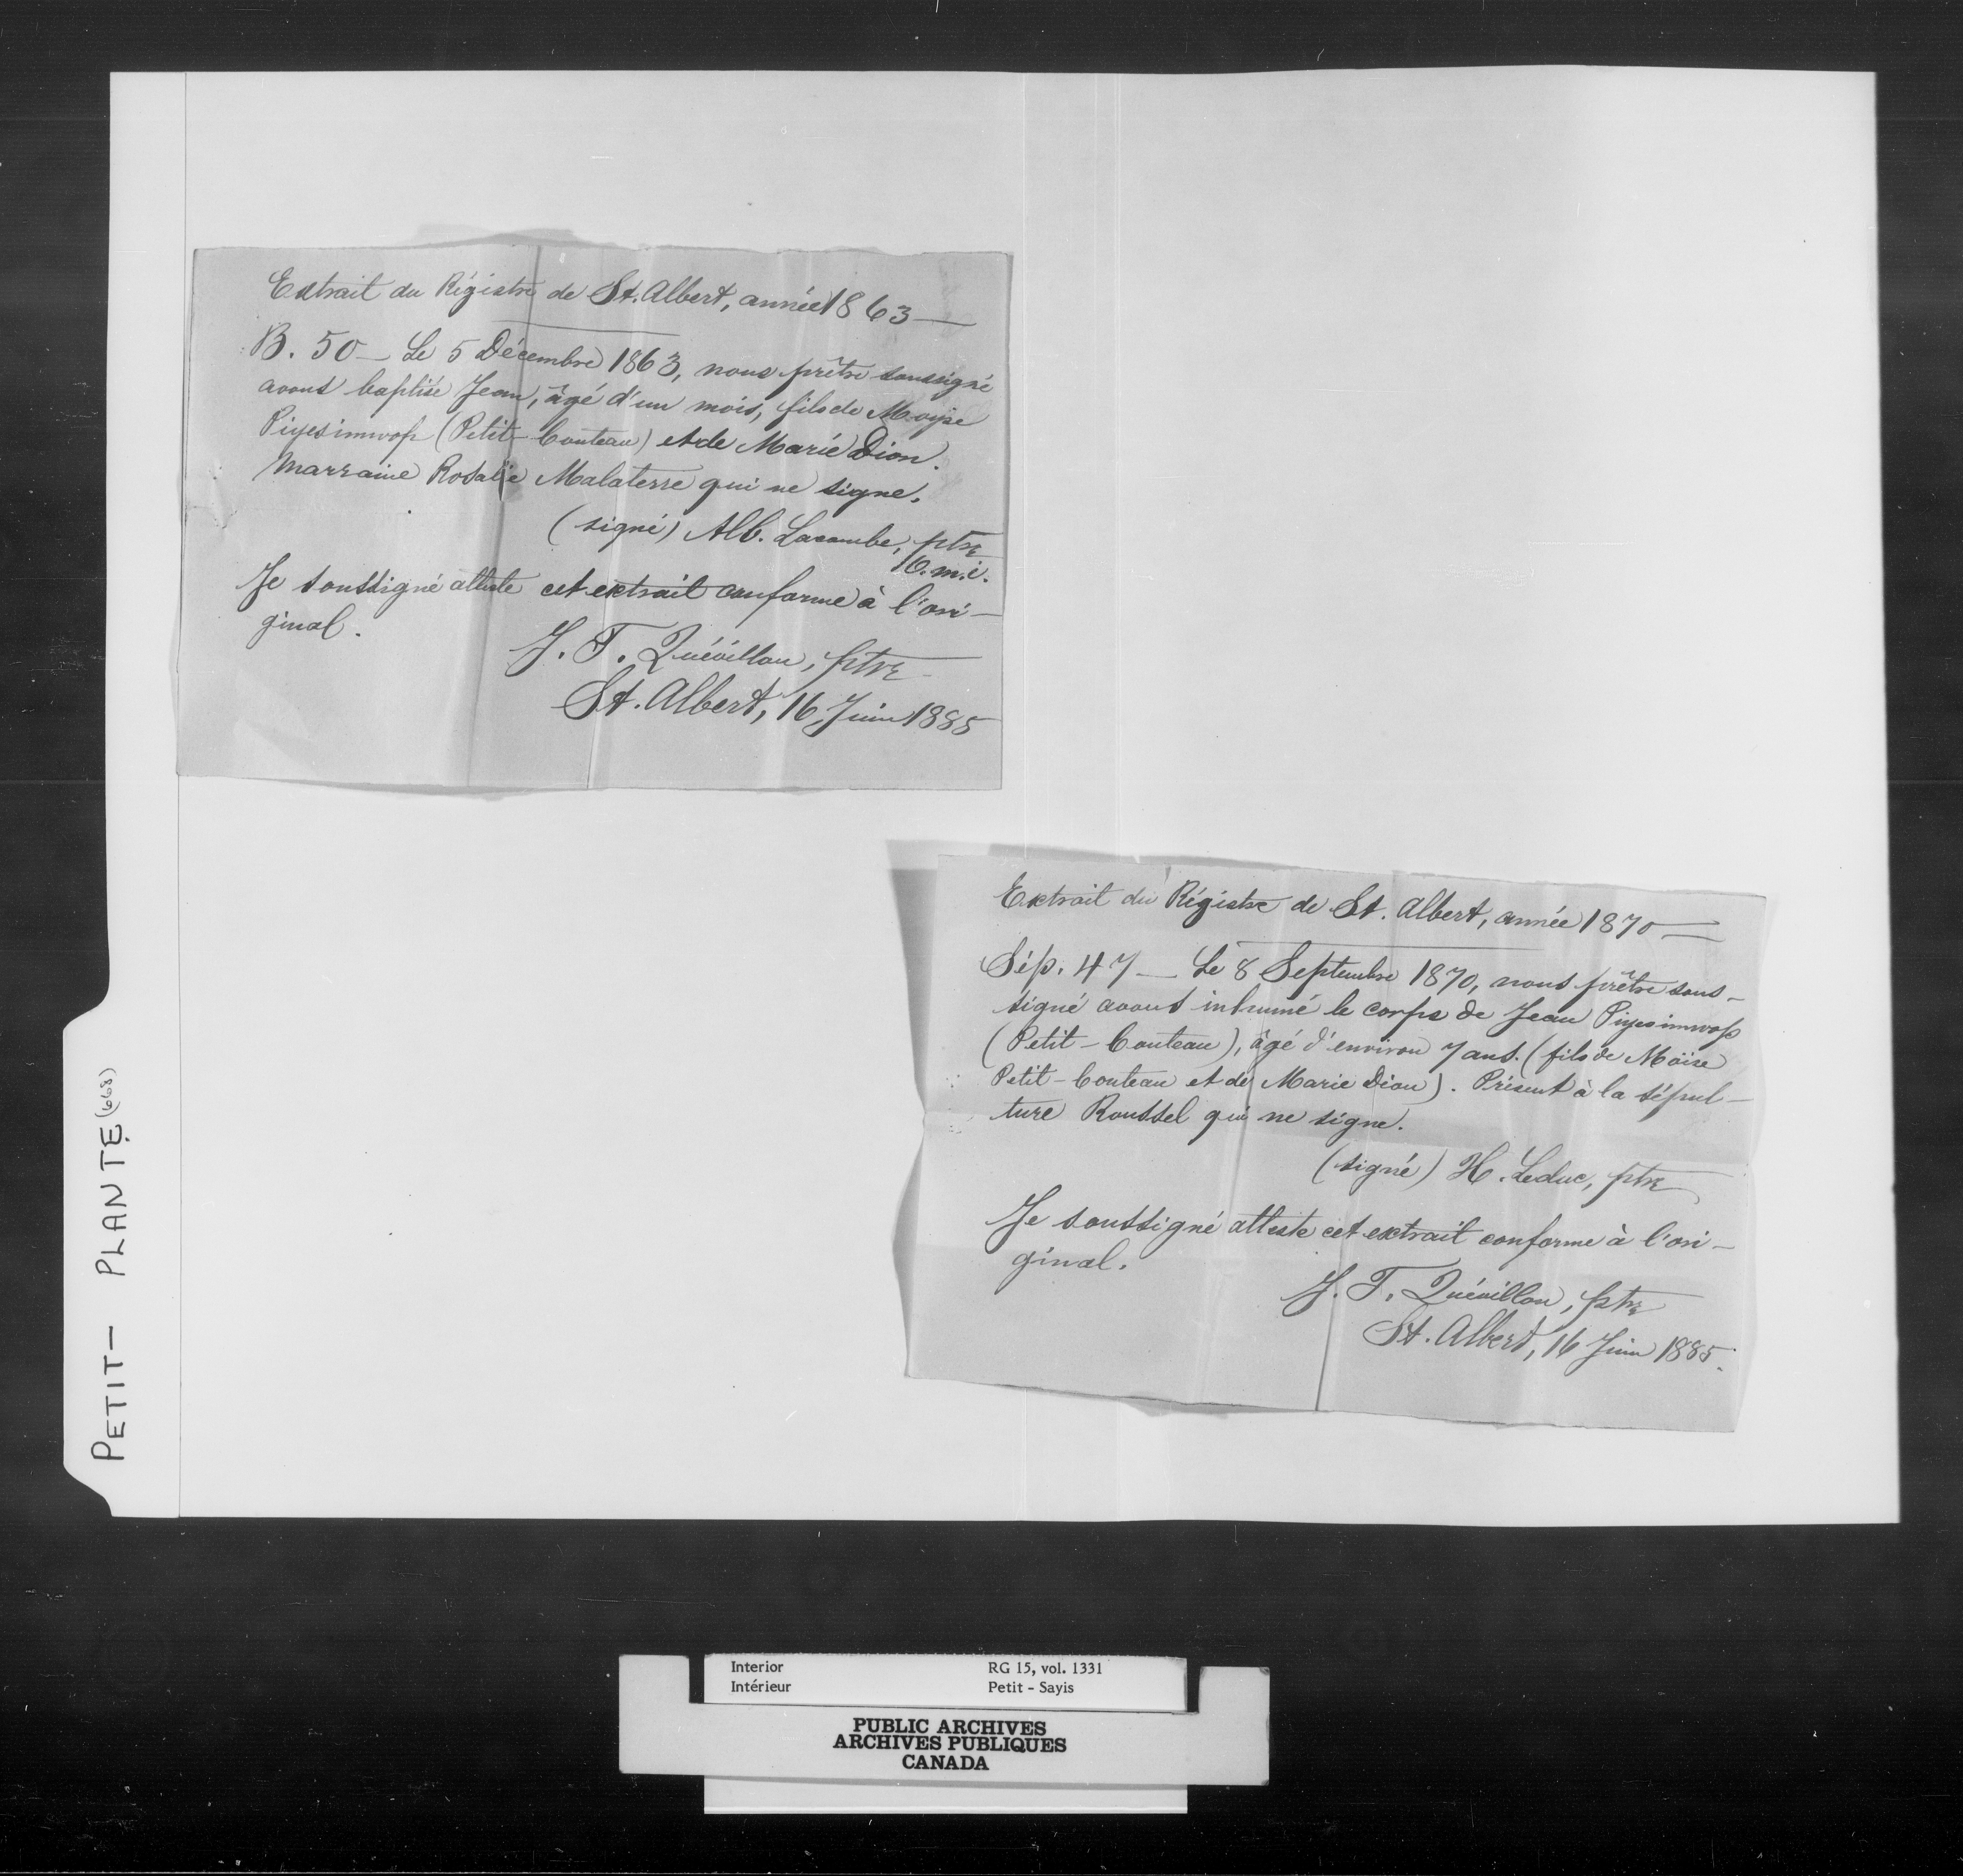 Extrait du Régistre de St. Albert, année 1863 —
B. 50 — Le 5 Décembre 1863, nous prêtre soussigné
avons baptisé Jean, âgé d'un mois, fils de Moyse
Piyesimwop (Petit-Couteau) et de Marie Dion.
Marraine Rosalie Malaterre qui ne signe.
(signé) Alb. Lacombe, ptre
O.m.i.
Je soussigné atteste cet extrait conforme à l'ori-
ginal.
J. T. Quévillon, ptre
St. Albert, 16 Juin 1885
Extrait du Régistre de St. Albert, année 1870 —
Sép. 47 — Le 8 Septembre 1870, nous prêtre sous-
signé avons inhumé le corps de Jean Piyesimwop
(Petit-Couteau), âgé d'environ 7 ans. (fils de Moïse
Petit-Couteau et de Marie Dion). Présent à la sépul-
ture Roussel qui ne signe.
(signé) H. Leduc, ptre
Je soussigné atteste cet extrait conforme à l'ori-
ginal.
J. T. Quévillon, ptre
St. Albert, 16 Juin 1885.
PETIT- PLANTE (668)
Interior RG 15, vol. 1331
Intérieur Petit - Sayis
PUBLIC ARCHIVES
ARCHIVES PUBLIQUES
CANADA